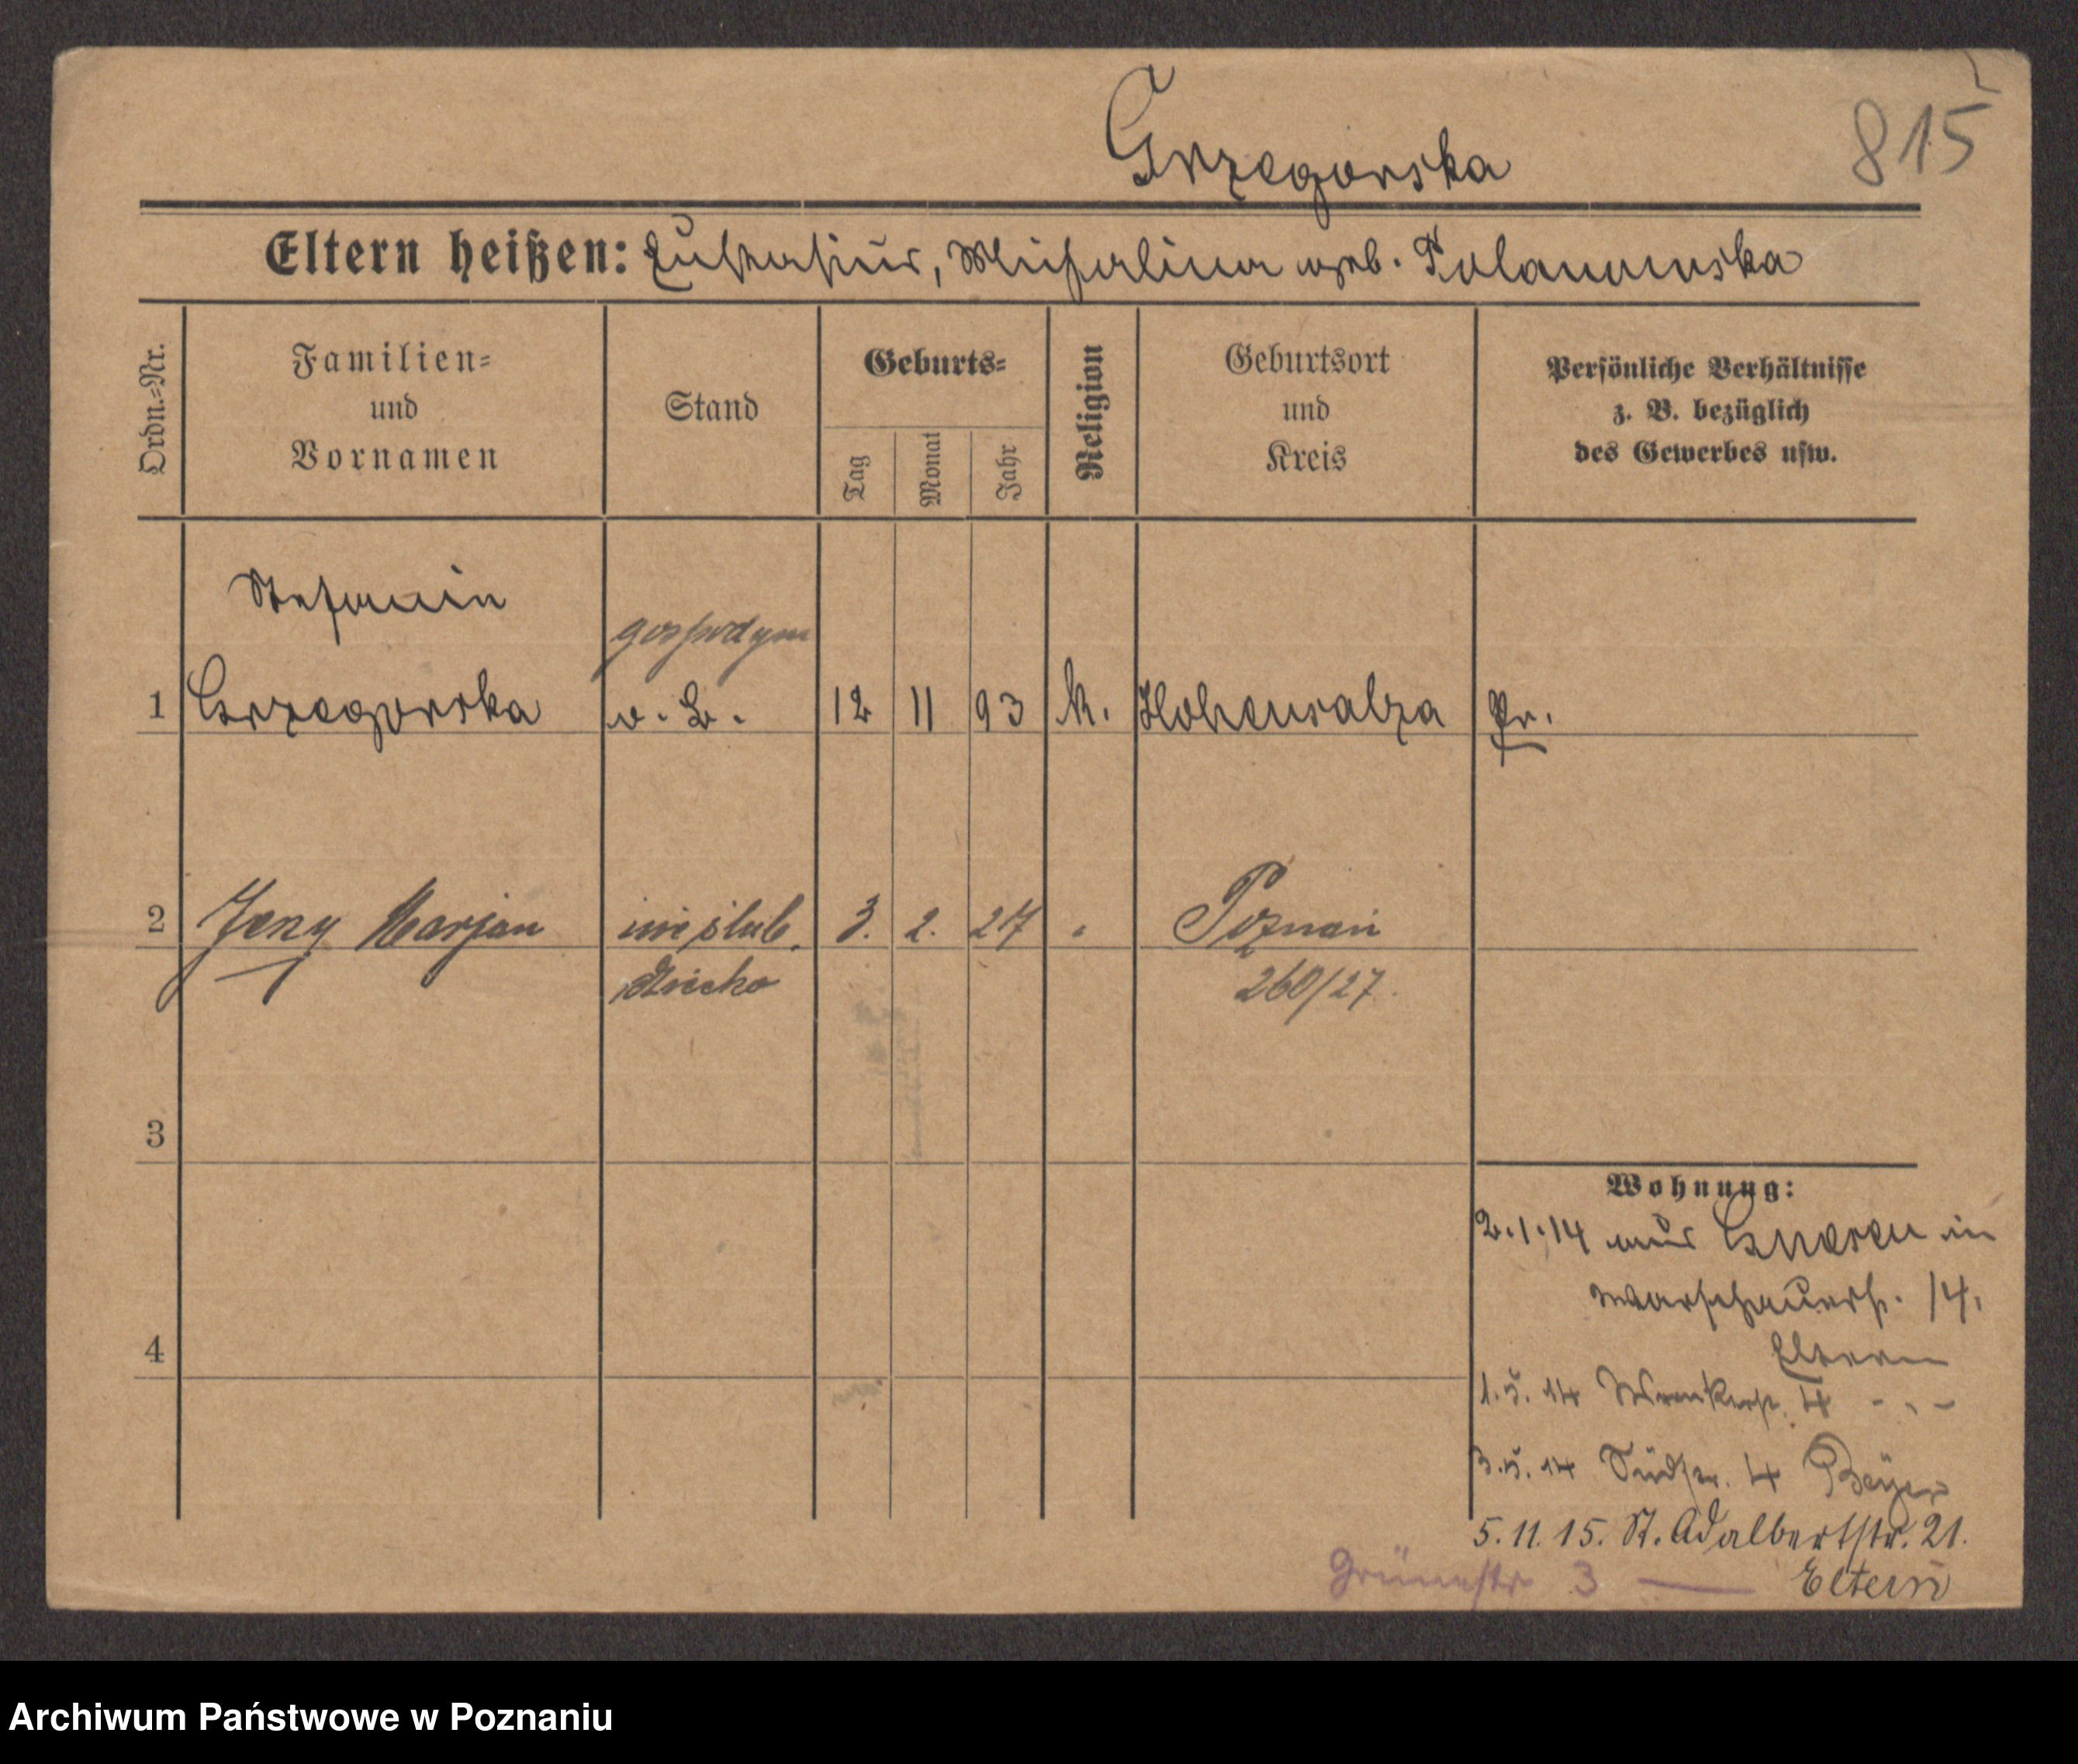 Grzegorska
815
Eltern heißen: Eustasius, Michalina geb. Polanowska
Ordn.=Nr.
Familien=
und
Vornamen
Stand
Geburts=
Tag
Monat
Jahr
Religion
Geburtsort
und
Kreis
Persönliche Verhältnisse
z. B. bezüglich
des Gewerbes usw.
Stefania
gospodyni
1 Grzegorska o. B. 12 11 93 k. Hohensalza Pr.
2 Jerzy Marjan nieślub. 3. 2. 27 " Poznań
dziecko 260/27.
3
Wohnung:
2.1.14 aus Gnesen in
Warschauerstr. 14.
4
Eltern
1.5.14 Wronkerstr. 4 - " -
3.5.14 Südstr. 4 Beyer
5.11.15. St. Adalbertstr. 21.
Grünestr 3 — Eltern
Archiwum Państwowe w Poznaniu